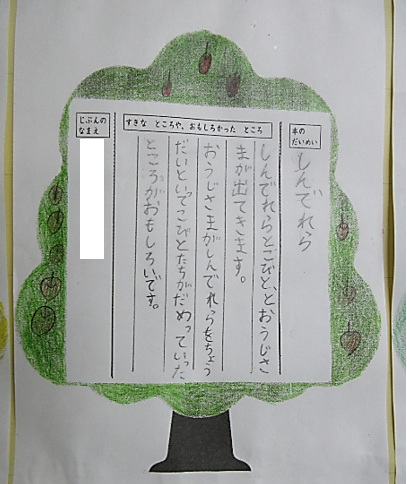 本の
だいめい
しんでれら
すきな ところや、おもしろかった ところ
しんでれらとこびと、とおうじさ
まが出てきます。
おうじさまがしんでれらをちょう
だいといってこびとたちがだめっていった
ところがおもしろいです。
じぶんの
なまえ